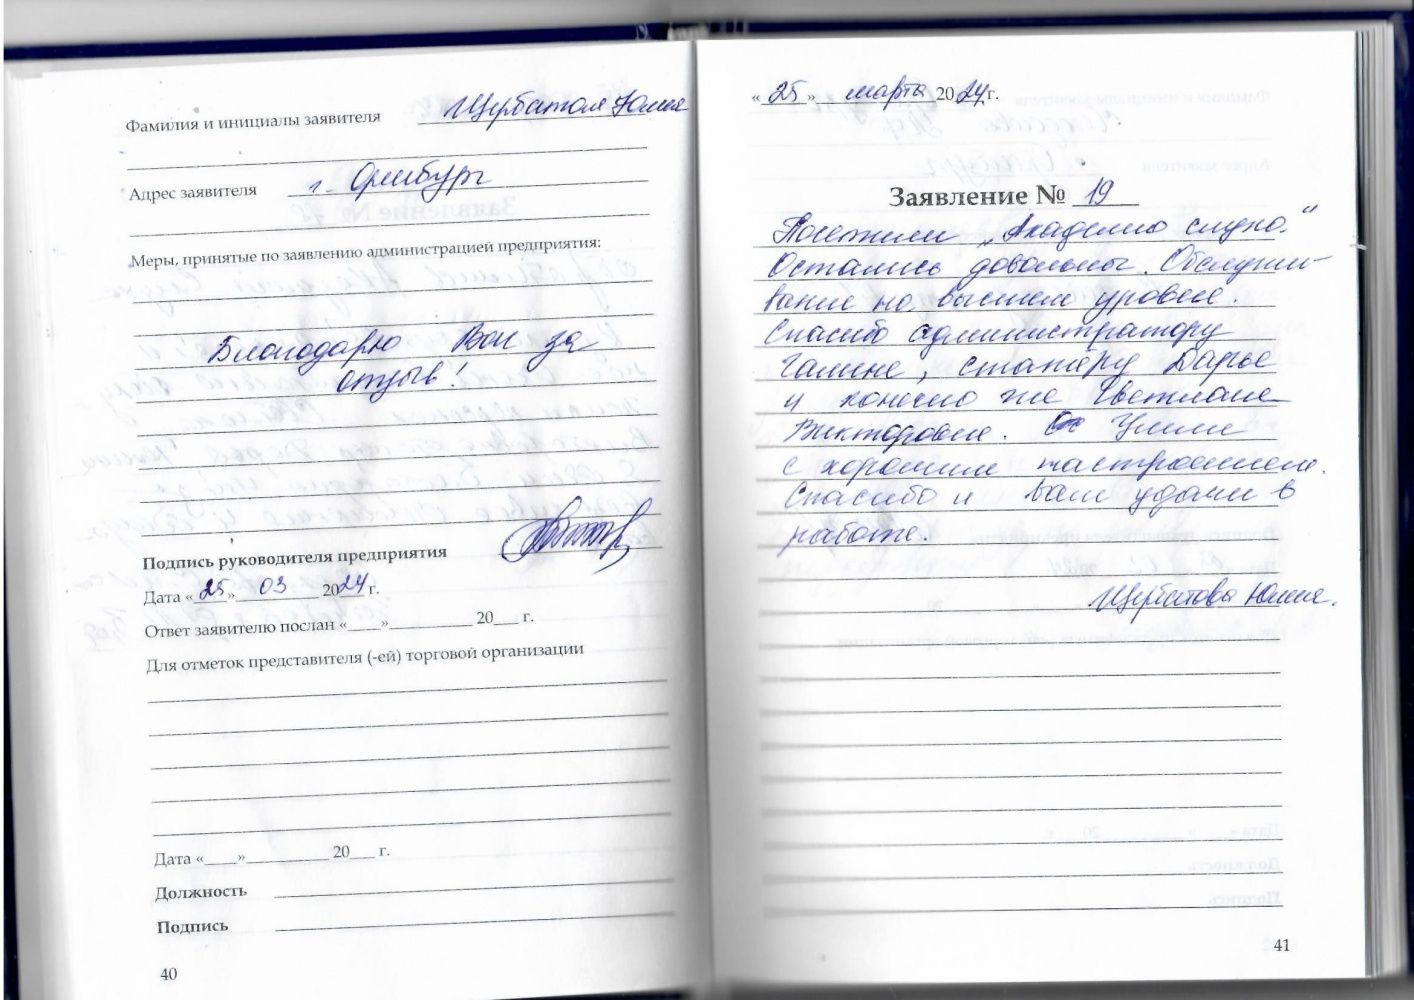 Фамилия и инициалы заявителя Щербатова Юлия
Адрес заявителя г. Оренбург
Меры, принятые по заявлению администрацией предприятия:
Благодарю Вас за
отзыв!
Подпись руководителя предприятия
Дата «25» 03 2024 г.
Ответ заявителю послан «____»__________ 20___ г.
Для отметок представителя (-ей) торговой организации
Дата «____»__________ 20___ г.
Должность
Подпись
40
«25» марта 2024 г.
Заявление № 19
Посетили „Академию слуха.“
Остались довольны. Обслужи-
вание на высшем уровне.
Спасибо администратору
Галине, стажеру Дарье
и конечно же Светлане
Викторовне. Ушли
с хорошим настроением.
Спасибо и вам удачи в
работе.
Щербатова Юлия.
41